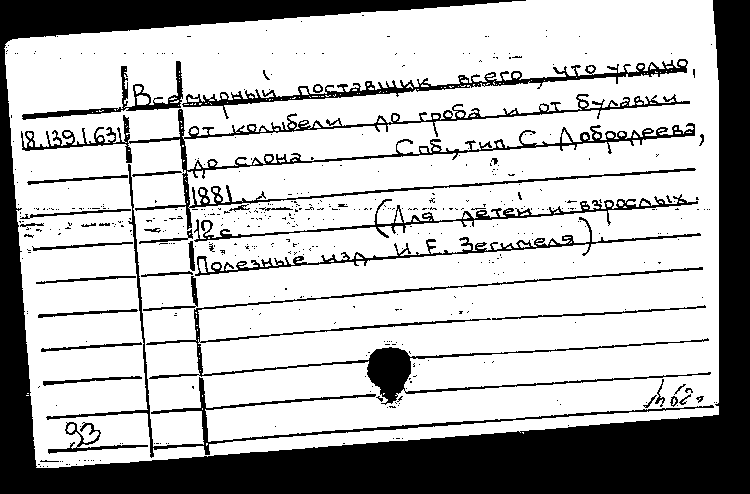 Всемирный поставщик всего, что угодно,
18.139.1.631 от колыбели до гроба и от булавки
до слона. Спб., тип. С. Добродеева,
1881.
12 с. (Для детей и взрослых.
Полезные изд. И. Е. Зегимеля).
93